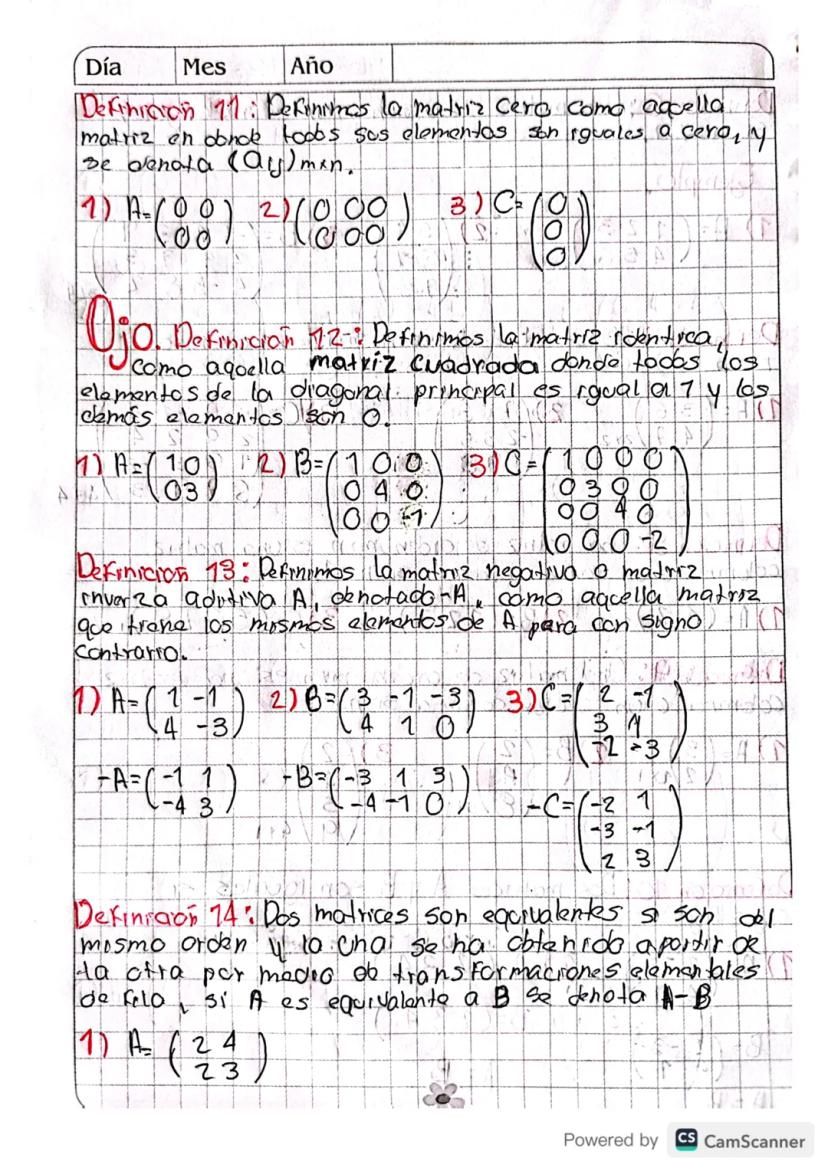 Día Mes Año
Definición 11: Definimos la matriz cero como aquella
matriz en donde todos sus elementos son iguales a cero, y
se denota (aij)mxn.
1) A=(0 0 2)(0 00 3) C=(0
00) 000) 0
0)
Ojo. Definición 12-: Definimos la matriz identica,
como aquella matríz cuadrada donde todos los
elementos de la diagonal principal es igual a 1 y los
demás elementos son 0.
1) A=(1 0 2) B=(1 0 0 3) C=(1 0 0 0
0 3) 0 4 0 0 3 0 0
0 0 -1) 0 0 4 0
0 0 0 -2)
Definición 13: Definimos la matriz negativo o matriz
inverza aditiva A, denotado -A, como aquella matriz
que tiene los mismos elementos de A para con signo
contrario.
1) A=(1 -1 2) B=(3 -1 -3 3) C=(2 -1
4 -3) 4 1 0) 3 1
-2 -3)
-A=(-1 1 -B=(-3 1 3
-4 3) -4 -1 0) -C=(-2 1
-3 -1
2 3)
Definición 14: Dos matrices son equivalentes si son del
mismo orden y la cual se ha obtenido a partir de
la otra por medio de transformaciones elementales
de fila, si A es equivalente a B se denota A-B
1) A= (2 4
2 3)
Powered by CS CamScanner